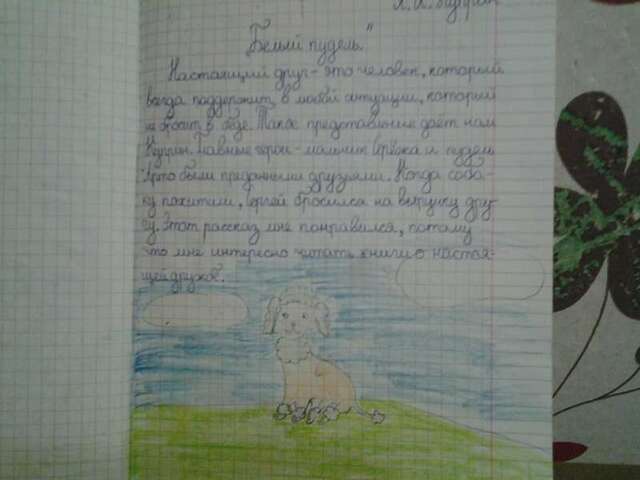 А. И. Куприн
"Белый пудель."
Настоящий друг - это человек, который
всегда поддержит в любой ситуации, который
не бросит в беде. Такое представление даёт нам
Куприн. Главные герои - мальчик Серёжа и пудель
Арто были преданными друзьями. Когда соба-
ку похитили, Сергей бросился на выручку дру-
гу. Этот рассказ мне понравился, потому
что мне интересно читать книги о настоя-
щей дружбе.